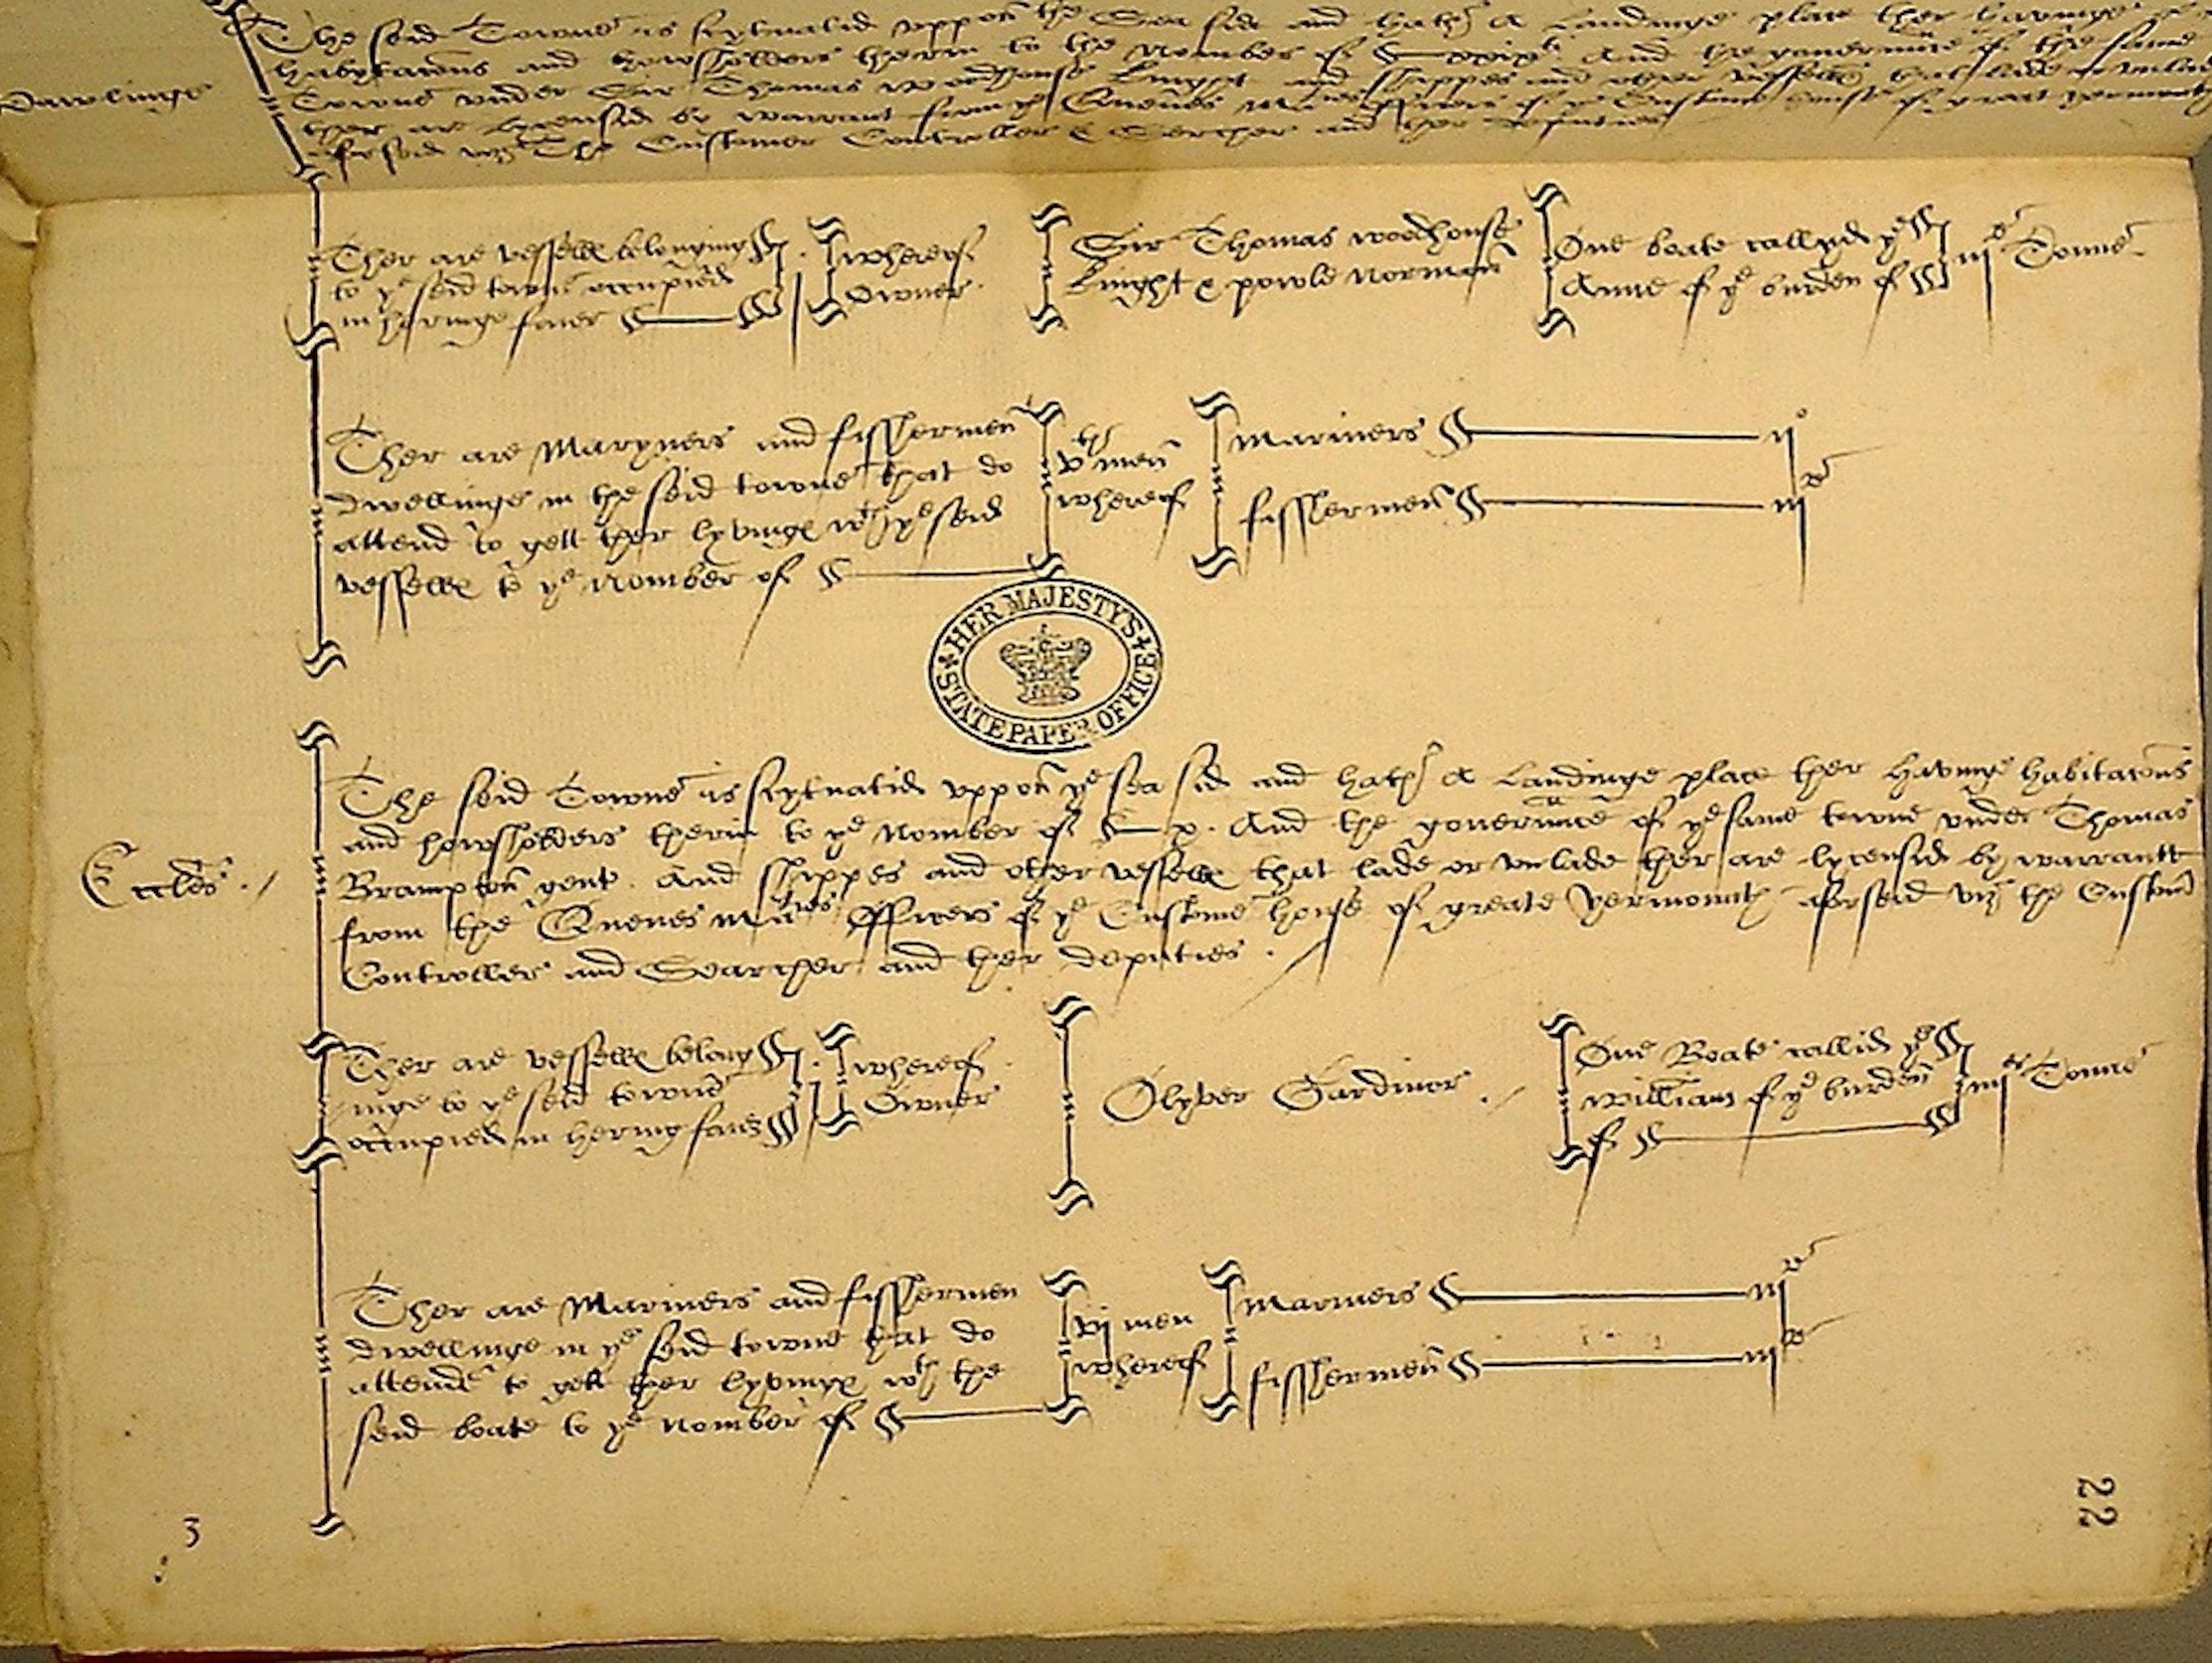 The seid Towne is scytuatid vppon the Sea side and hath A Landinge place ther havinge
habytacons and howsholders therin to the nomber of And the gouernaunce of the same
Pawlinge
Towne vnder Sir Thomas Woodhouse knight and shippes and other vesselles that lade or vnlade
ther are lycensid by warrant from ye Quenes Maties officers of ye Custome house of great yermouth
aforseid viz The Customer Controller & Sercher and ther deputies
Ther are vesselles belonging
to ye seid towne occupied
in heringe faier
whereof
Owner
Sir Thomas woodhouse
knight & powle Norman
One boate callyd ye
Anne of ye burden of
iije Tonne
Ther are Maryners and fisshermen
dwellinge in the seid towne that do
attend to gett ther lyvinge wth ye seid
vesselles to ye nomber of
vth men
whereof
Mariners ijo
fisshermen iije
HER MAJESTY'S
STATE PAPER OFFICE
Eccles
The seid Towne is scytuatid vppon ye sea side and hath A Landinge place ther havinge habitacons
and howsholders therin to ye nomber of x. And the gouernaunce of ye same towne vnder Thomas
Brampton gent. And shippes and other vesselles that lade or vnlade ther are lycensid by warrantt
from the Quenes Maties Officers of ye Custome house of greate yermouth aforseid viz the Custom
Controller and Searcher and ther deputies
Ther are vesselles belong
inge to ye seid towne
occupied in hering faier
whereof
Owner
Olyver Gardiner
One Boate callid ye
William of ye burden
of
iiijer Tonne
Ther are Mariners and fisshermen
dwellinge in ye seid towne that do
attende to gett ther lyvinge wth the
seid boate to ye nomber of
vj men
whereof
Mariners iije
fisshermen iije
3
22